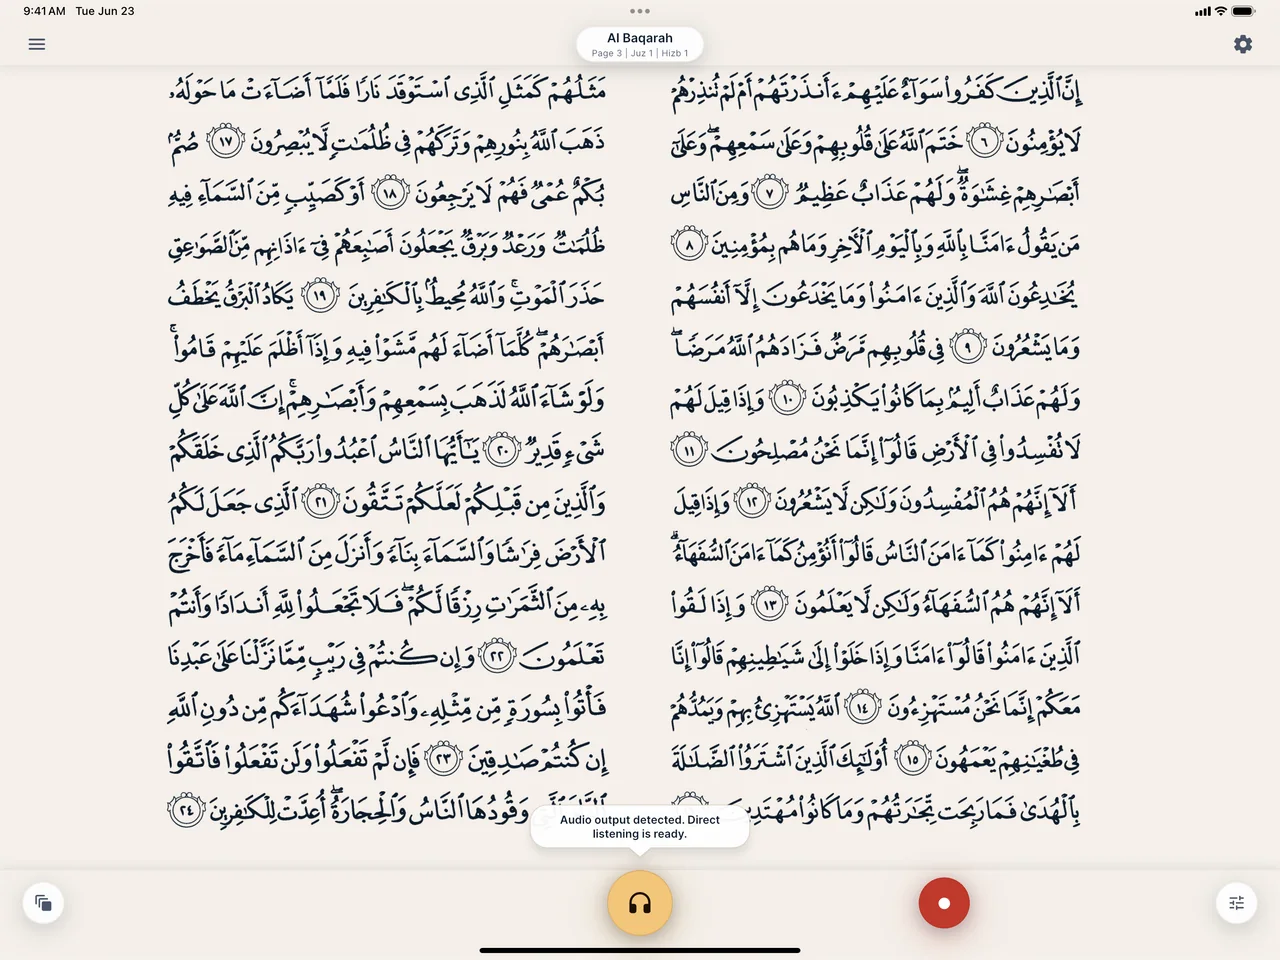 9:41 AM Tue Jun 23
Al Baqarah
Page 3 | Juz 1 | Hizb 1
إِنَّ ٱلَّذِينَ كَفَرُوا۟ سَوَآءٌ عَلَيْهِمْ ءَأَنذَرْتَهُمْ أَمْ لَمْ تُنذِرْهُمْ
لَا يُؤْمِنُونَ ٦ خَتَمَ ٱللَّهُ عَلَىٰ قُلُوبِهِمْ وَعَلَىٰ سَمْعِهِمْ ۖ وَعَلَىٰٓ
أَبْصَـٰرِهِمْ غِشَـٰوَةٌ ۖ وَلَهُمْ عَذَابٌ عَظِيمٌ ٧ وَمِنَ ٱلنَّاسِ
مَن يَقُولُ ءَامَنَّا بِٱللَّهِ وَبِٱلْيَوْمِ ٱلْـَٔاخِرِ وَمَا هُم بِمُؤْمِنِينَ ٨
يُخَـٰدِعُونَ ٱللَّهَ وَٱلَّذِينَ ءَامَنُوا۟ وَمَا يَخْدَعُونَ إِلَّآ أَنفُسَهُمْ
وَمَا يَشْعُرُونَ ٩ فِى قُلُوبِهِم مَّرَضٌ فَزَادَهُمُ ٱللَّهُ مَرَضًا ۖ
وَلَهُمْ عَذَابٌ أَلِيمٌۢ بِمَا كَانُوا۟ يَكْذِبُونَ ١٠ وَإِذَا قِيلَ لَهُمْ
لَا تُفْسِدُوا۟ فِى ٱلْأَرْضِ قَالُوٓا۟ إِنَّمَا نَحْنُ مُصْلِحُونَ ١١
أَلَآ إِنَّهُمْ هُمُ ٱلْمُفْسِدُونَ وَلَـٰكِن لَّا يَشْعُرُونَ ١٢ وَإِذَا قِيلَ
لَهُمْ ءَامِنُوا۟ كَمَآ ءَامَنَ ٱلنَّاسُ قَالُوٓا۟ أَنُؤْمِنُ كَمَآ ءَامَنَ ٱلسُّفَهَآءُ ۗ
أَلَآ إِنَّهُمْ هُمُ ٱلسُّفَهَآءُ وَلَـٰكِن لَّا يَعْلَمُونَ ١٣ وَإِذَا لَقُوا۟
ٱلَّذِينَ ءَامَنُوا۟ قَالُوٓا۟ ءَامَنَّا وَإِذَا خَلَوْا۟ إِلَىٰ شَيَـٰطِينِهِمْ قَالُوٓا۟ إِنَّا
مَعَكُمْ إِنَّمَا نَحْنُ مُسْتَهْزِءُونَ ١٤ ٱللَّهُ يَسْتَهْزِئُ بِهِمْ وَيَمُدُّهُمْ
فِى طُغْيَـٰنِهِمْ يَعْمَهُونَ ١٥ أُو۟لَـٰٓئِكَ ٱلَّذِينَ ٱشْتَرَوُا۟ ٱلضَّلَـٰلَةَ
بِٱلْهُدَىٰ فَمَا رَبِحَت تِّجَـٰرَتُهُمْ وَمَا كَانُوا۟ مُهْتَدِينَ
مَثَلُهُمْ كَمَثَلِ ٱلَّذِى ٱسْتَوْقَدَ نَارًا فَلَمَّآ أَضَآءَتْ مَا حَوْلَهُۥ
ذَهَبَ ٱللَّهُ بِنُورِهِمْ وَتَرَكَهُمْ فِى ظُلُمَـٰتٍ لَّا يُبْصِرُونَ ١٧ صُمٌّۢ
بُكْمٌ عُمْىٌ فَهُمْ لَا يَرْجِعُونَ ١٨ أَوْ كَصَيِّبٍ مِّنَ ٱلسَّمَآءِ فِيهِ
ظُلُمَـٰتٌ وَرَعْدٌ وَبَرْقٌ يَجْعَلُونَ أَصَـٰبِعَهُمْ فِىٓ ءَاذَانِهِم مِّنَ ٱلصَّوَٰعِقِ
حَذَرَ ٱلْمَوْتِ ۚ وَٱللَّهُ مُحِيطٌۢ بِٱلْكَـٰفِرِينَ ١٩ يَكَادُ ٱلْبَرْقُ يَخْطَفُ
أَبْصَـٰرَهُمْ ۖ كُلَّمَآ أَضَآءَ لَهُم مَّشَوْا۟ فِيهِ وَإِذَآ أَظْلَمَ عَلَيْهِمْ قَامُوا۟ ۚ
وَلَوْ شَآءَ ٱللَّهُ لَذَهَبَ بِسَمْعِهِمْ وَأَبْصَـٰرِهِمْ ۚ إِنَّ ٱللَّهَ عَلَىٰ كُلِّ
شَىْءٍ قَدِيرٌ ٢٠ يَـٰٓأَيُّهَا ٱلنَّاسُ ٱعْبُدُوا۟ رَبَّكُمُ ٱلَّذِى خَلَقَكُمْ
وَٱلَّذِينَ مِن قَبْلِكُمْ لَعَلَّكُمْ تَتَّقُونَ ٢١ ٱلَّذِى جَعَلَ لَكُمُ
ٱلْأَرْضَ فِرَٰشًا وَٱلسَّمَآءَ بِنَآءً وَأَنزَلَ مِنَ ٱلسَّمَآءِ مَآءً فَأَخْرَجَ
بِهِۦ مِنَ ٱلثَّمَرَٰتِ رِزْقًا لَّكُمْ ۖ فَلَا تَجْعَلُوا۟ لِلَّهِ أَندَادًا وَأَنتُمْ
تَعْلَمُونَ ٢٢ وَإِن كُنتُمْ فِى رَيْبٍ مِّمَّا نَزَّلْنَا عَلَىٰ عَبْدِنَا
فَأْتُوا۟ بِسُورَةٍ مِّن مِّثْلِهِۦ وَٱدْعُوا۟ شُهَدَآءَكُم مِّن دُونِ ٱللَّهِ
إِن كُنتُمْ صَـٰدِقِينَ ٢٣ فَإِن لَّمْ تَفْعَلُوا۟ وَلَن تَفْعَلُوا۟ فَٱتَّقُوا۟
وَقُودُهَا ٱلنَّاسُ وَٱلْحِجَارَةُ ۖ أُعِدَّتْ لِلْكَـٰفِرِينَ ٢٤
Audio output detected. Direct
listening is ready.